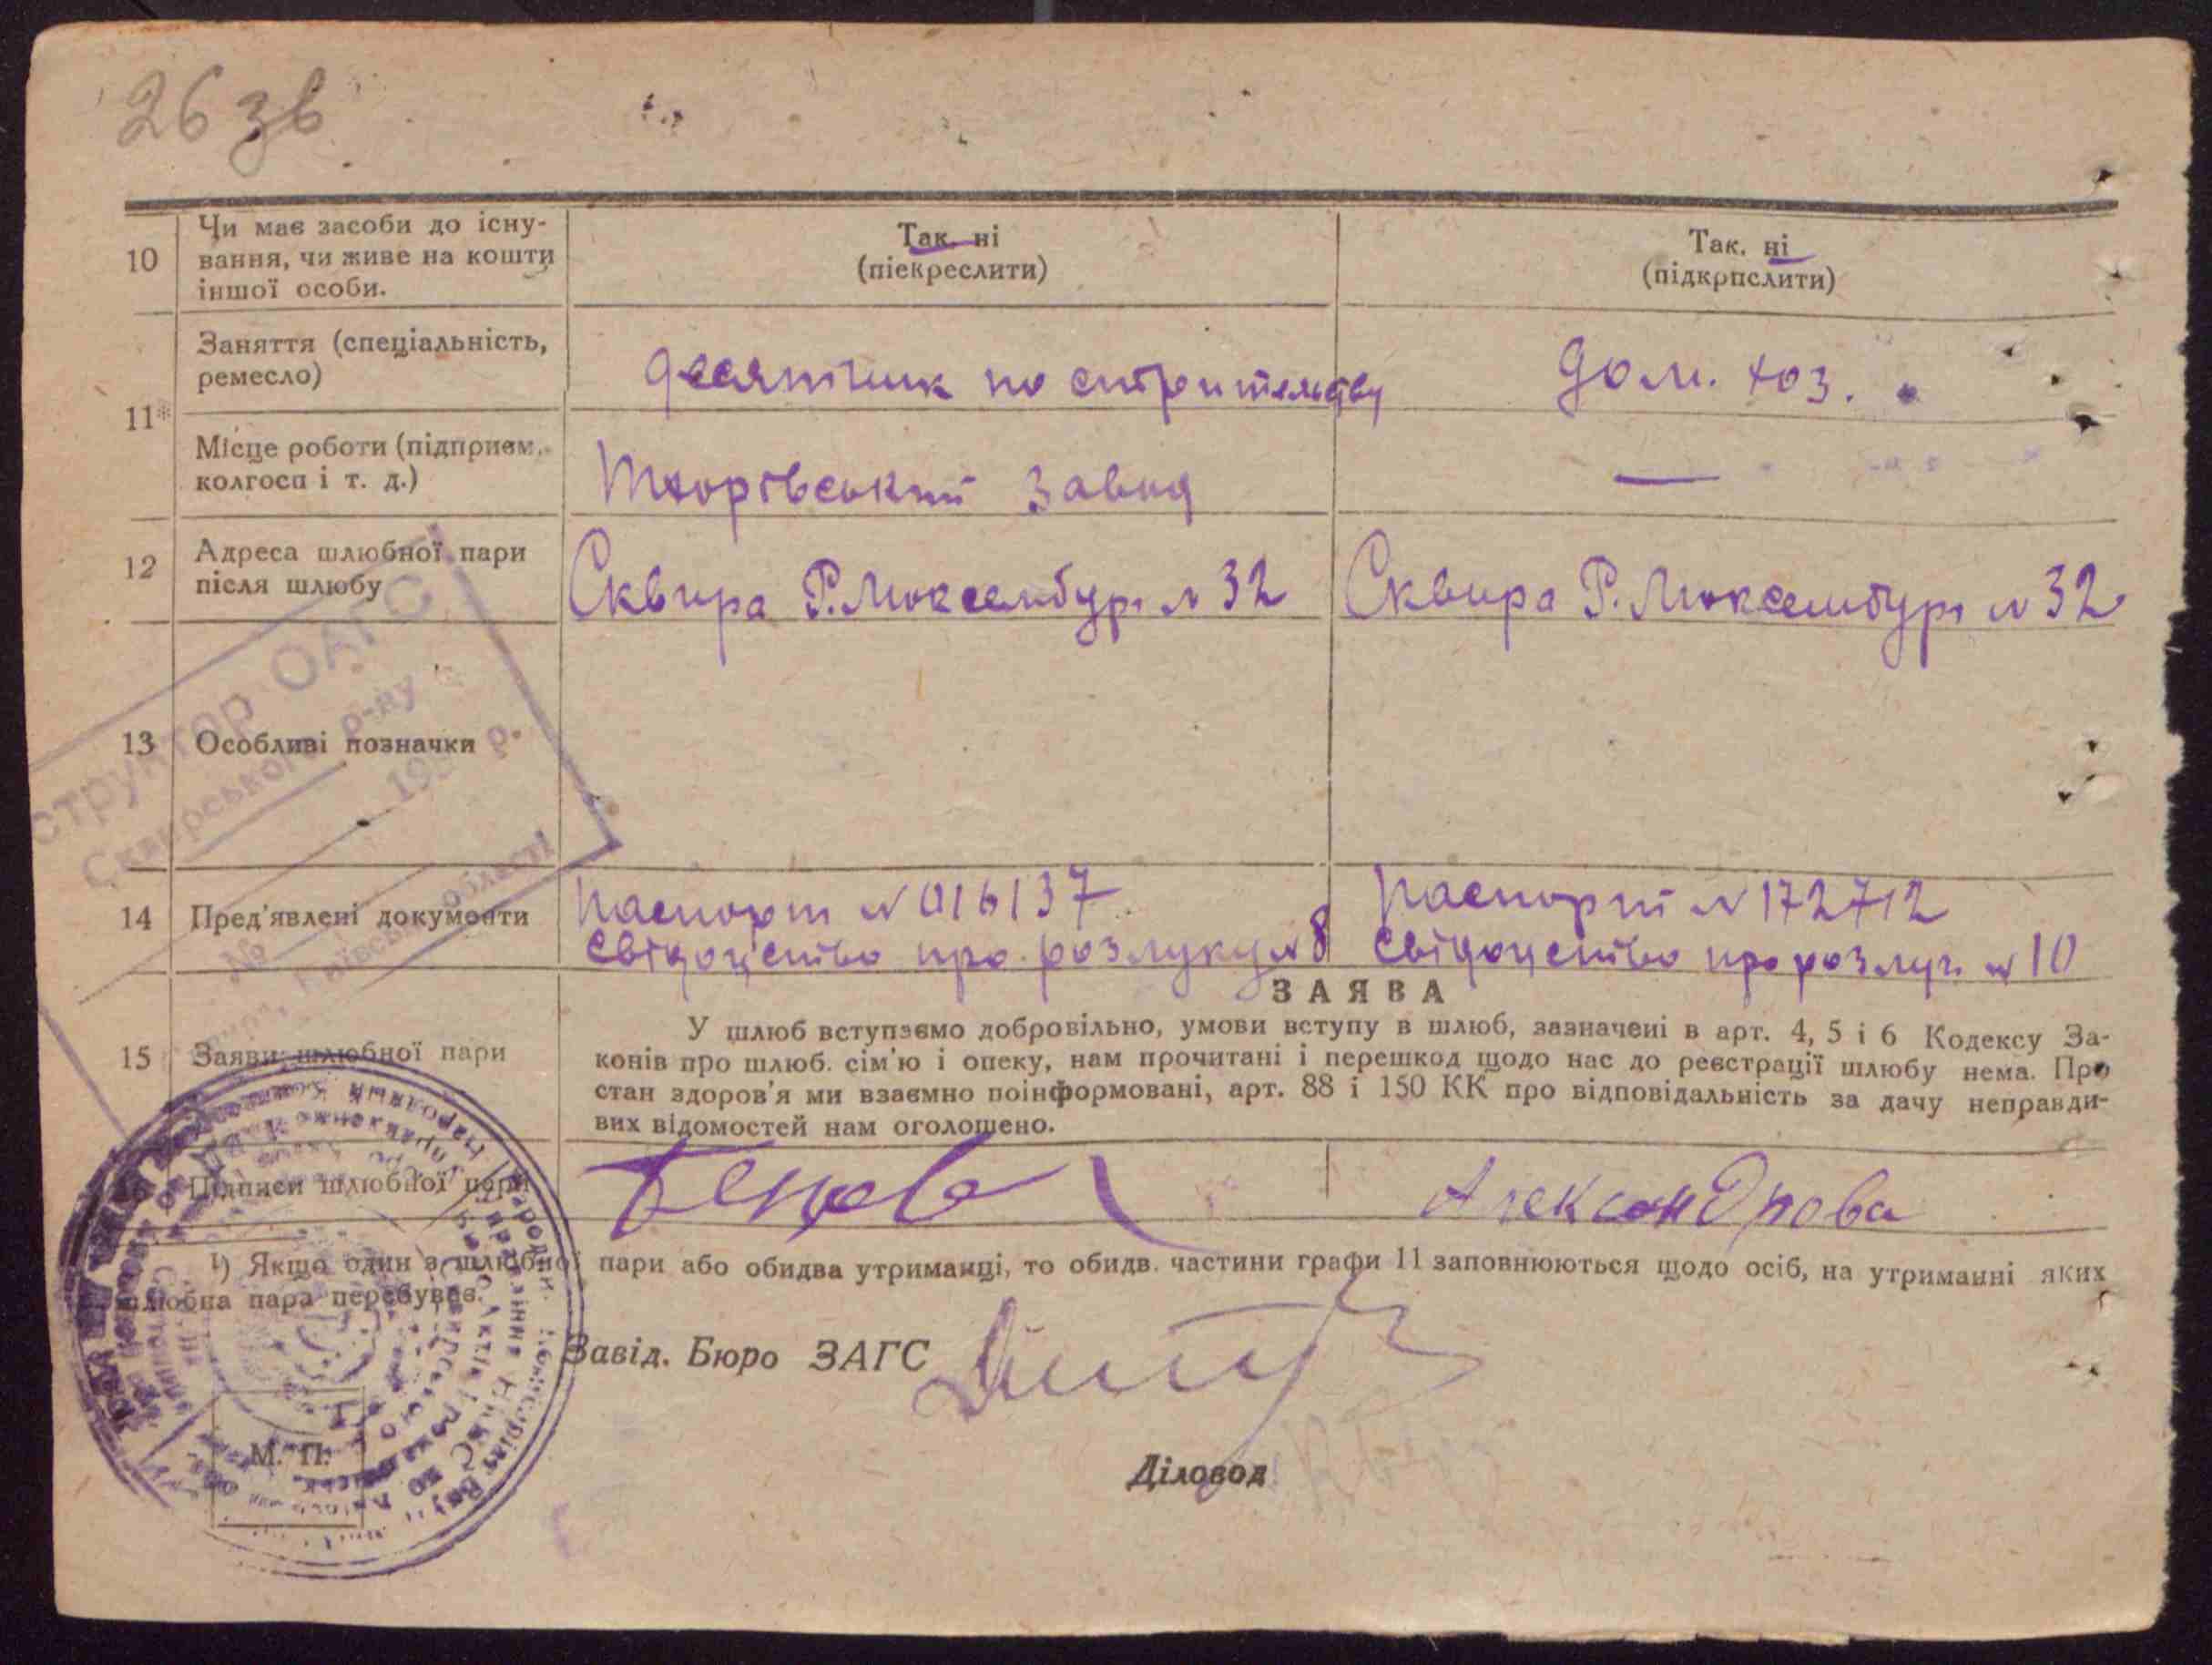 26 зв
10 Чи має засоби до існу-
вання, чи живе на кошти
іншої особи.
Так. ні
(піекреслити)
Так. ні
(підкрпслити)
11* Заняття (спеціальність,
ремесло)
десятник по строительству
дом. хоз.
Місце роботи (підприєм.
колгосп і т. д.)
Тхорівський завод
—
12 Адреса шлюбної пари
після шлюбу
Сквира Р. Люксембург № 32
Сквира Р. Люксембург № 32
13 Особливі позначки
14 Пред'явлені документи
паспорт № 016137
свідоцство про розлуку № 8
паспорт № 172712
свідоцство про розлуч. № 10
ЗАЯВА
15 Заяви шлюбної пари
У шлюб вступаємо добровільно, умови вступу в шлюб, зазначені в арт. 4, 5 і 6 Кодексу За-
конів про шлюб. сім'ю і опеку, нам прочитані і перешкод щодо нас до реєстрації шлюбу нема. Про
стан здоров'я ми взаємно поінформовані, арт. 88 і 150 КК про відповідальність за дачу неправди-
вих відомостей нам оголошено.
Підписи шлюбної пари
Александрова
¹) Якщо один з шлюбної пари або обидва утриманці, то обидв. частини графи 11 заповнюються щодо осіб, на утриманні яких
шлюбна пара перебуває.
Завід. Бюро ЗАГС
М. П.
Діловод
структор ОАГС
Сквирського р-ну
193 р.
№
області